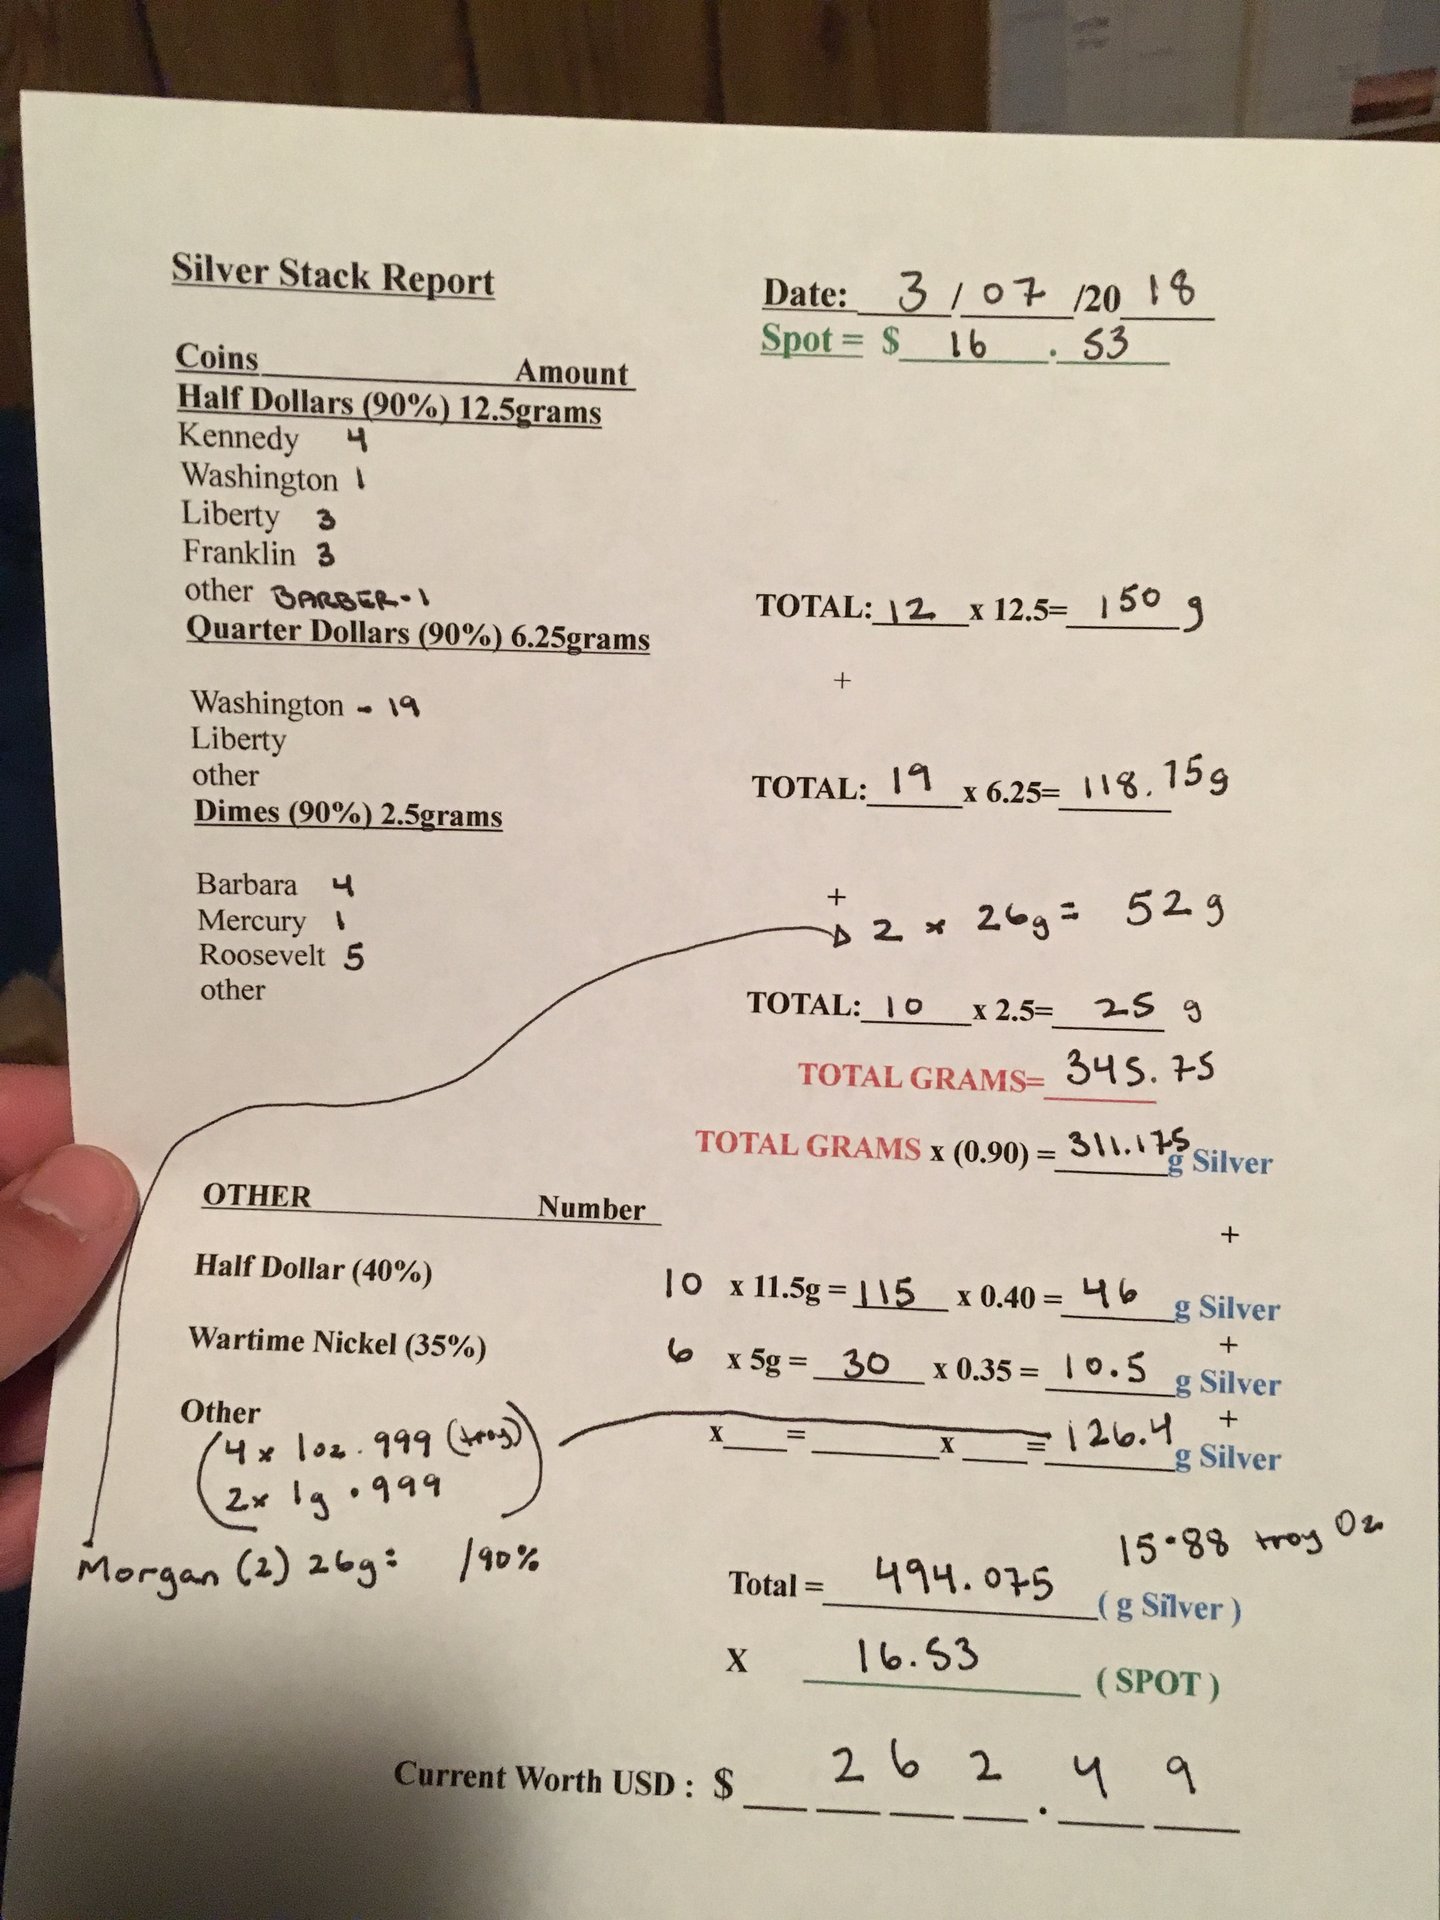 Silver Stack Report
Date: 3 / 07 /20 18
Spot = $ 16 . 53
Coins Amount
Half Dollars (90%) 12.5grams
Kennedy 4
Washington 1
Liberty 3
Franklin 3
other BARBER-1
TOTAL: 12 x 12.5= 150 g
Quarter Dollars (90%) 6.25grams
+
Washington - 19
Liberty
other
TOTAL: 19 x 6.25= 118.75g
Dimes (90%) 2.5grams
Barbara 4
+
Mercury 1
2 x 26g = 52g
Roosevelt 5
other
TOTAL: 10 x 2.5= 25 g
TOTAL GRAMS= 345.75
TOTAL GRAMS x (0.90) = 311.175 g Silver
OTHER Number
+
Half Dollar (40%) 10 x 11.5g = 115 x 0.40 = 46 g Silver
+
Wartime Nickel (35%) 6 x 5g = 30 x 0.35 = 10.5 g Silver
+
Other x = x = 126.4 g Silver
(4 x 1oz .999 (troy)
2x 1g .999)
Morgan (2) 26g = /90%
15.88 troy Oz
Total = 494.075 ( g Silver )
X 16.53 ( SPOT )
Current Worth USD : $ 262.49